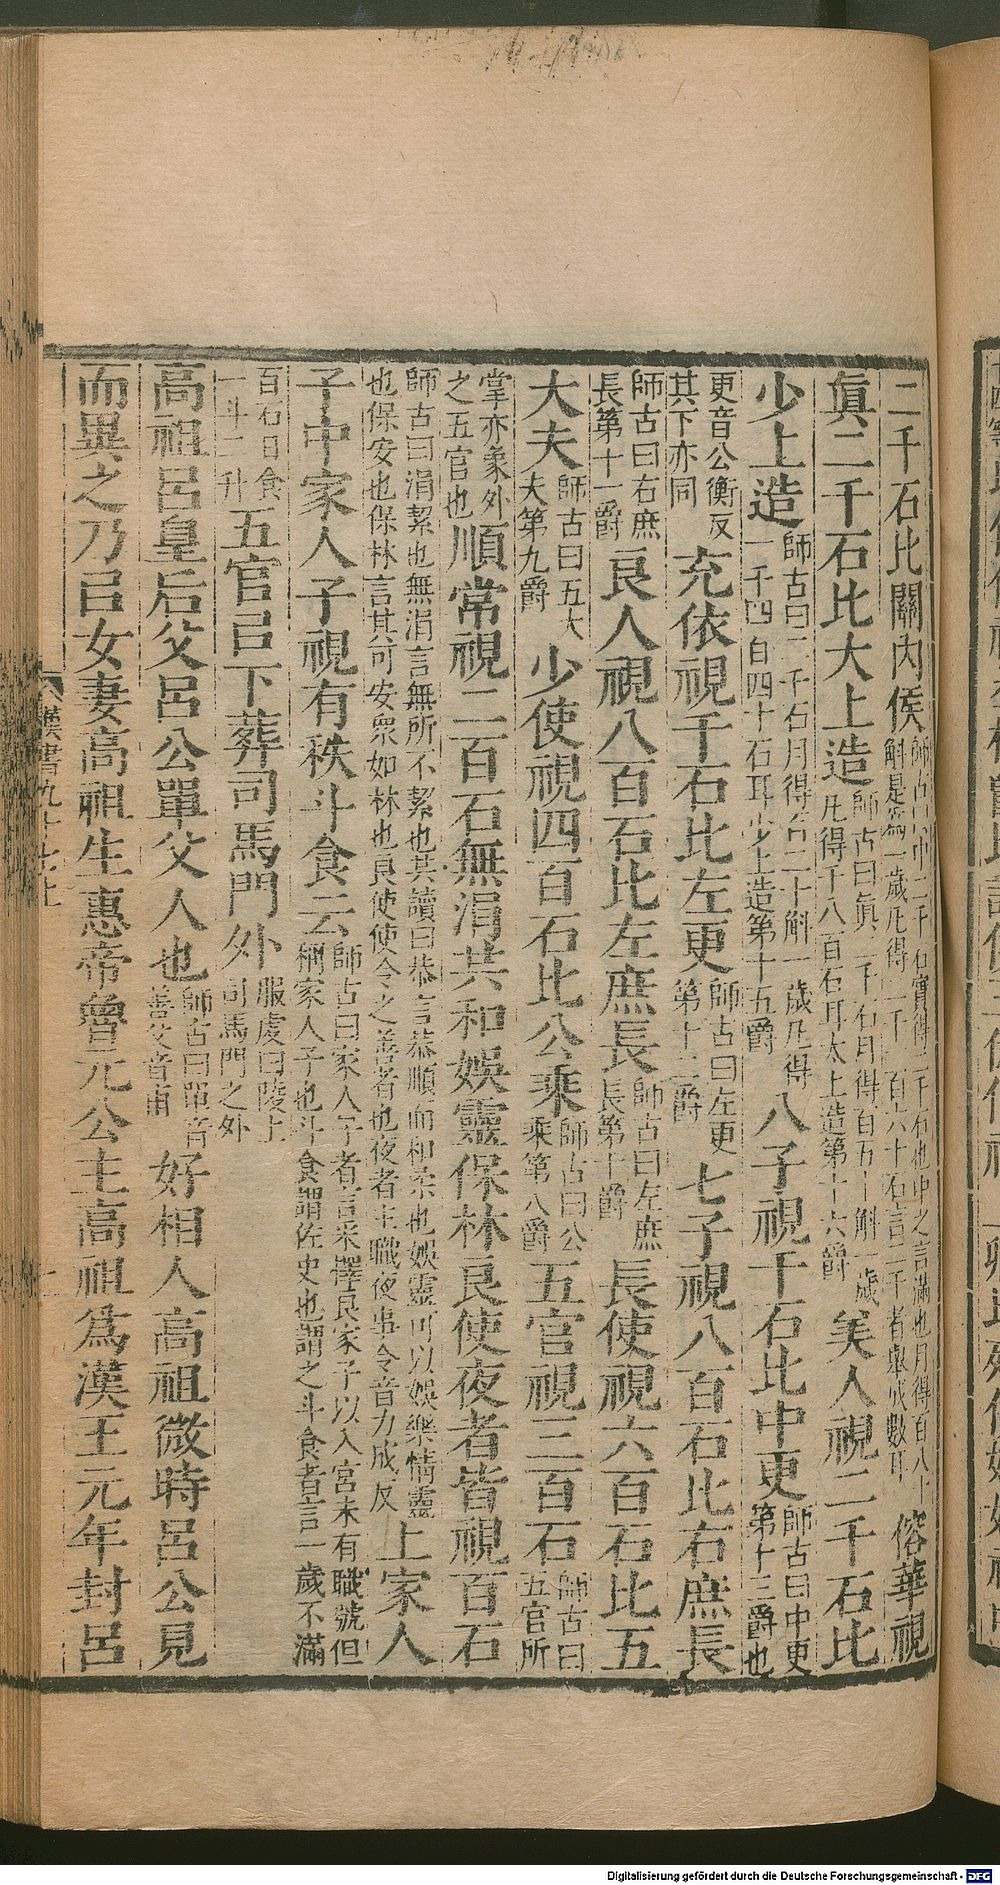 二千石比關內侯師古曰中二千石實得二千石也中之言滿也月得百八十斛是爲一歲凡得二千一百六十石言二千者舉成數耳傛華視
眞二千石比大上造師古曰眞二千石月得百五十斛一歲凡得千八百石耳大上造第十六爵美人視二千石比
少上造師古曰二千石月得百二十斛一歲凡得一千四百四十石耳少上造第十五爵八子視千石比中更師古曰中更第十三爵也
更音公衡反其下亦同充依視千石比左更師古曰左更第十二爵七子視八百石比右庶長
師古曰右庶長第十一爵良人視八百石比左庶長師古曰左庶長第十爵長使視六百石比五
大夫師古曰五大夫第九爵少使視四百石比公乘師古曰公乘第八爵五官視三百石師古曰五官所
掌亦象外之五官也順常視二百石無涓共和娛靈保林良使夜者皆視百石
師古曰涓絜也無涓言無所不絜也共讀曰恭言恭順而和柔也娛靈可以娛樂情靈也保安也保林言其可安衆如林也良使使令之善者也夜者主職夜事令音力成反上家人
子中家人子視有秩斗食云師古曰家人子者言采擇良家子以入宮未有職號但稱家人子也斗食謂佐史也謂之斗食者言一歲不滿
百石日食一斗二升五官㠯下葬司馬門外服虔曰陵上司馬門之外
高祖呂皇后父呂公單父人也師古曰單音善父音甫好相人高祖微時呂公見
而異之乃㠯女妻高祖生惠帝魯元公主高祖爲漢王元年封呂
漢書九十七上
Digitalisierung gefördert durch die Deutsche Forschungsgemeinschaft - DFG